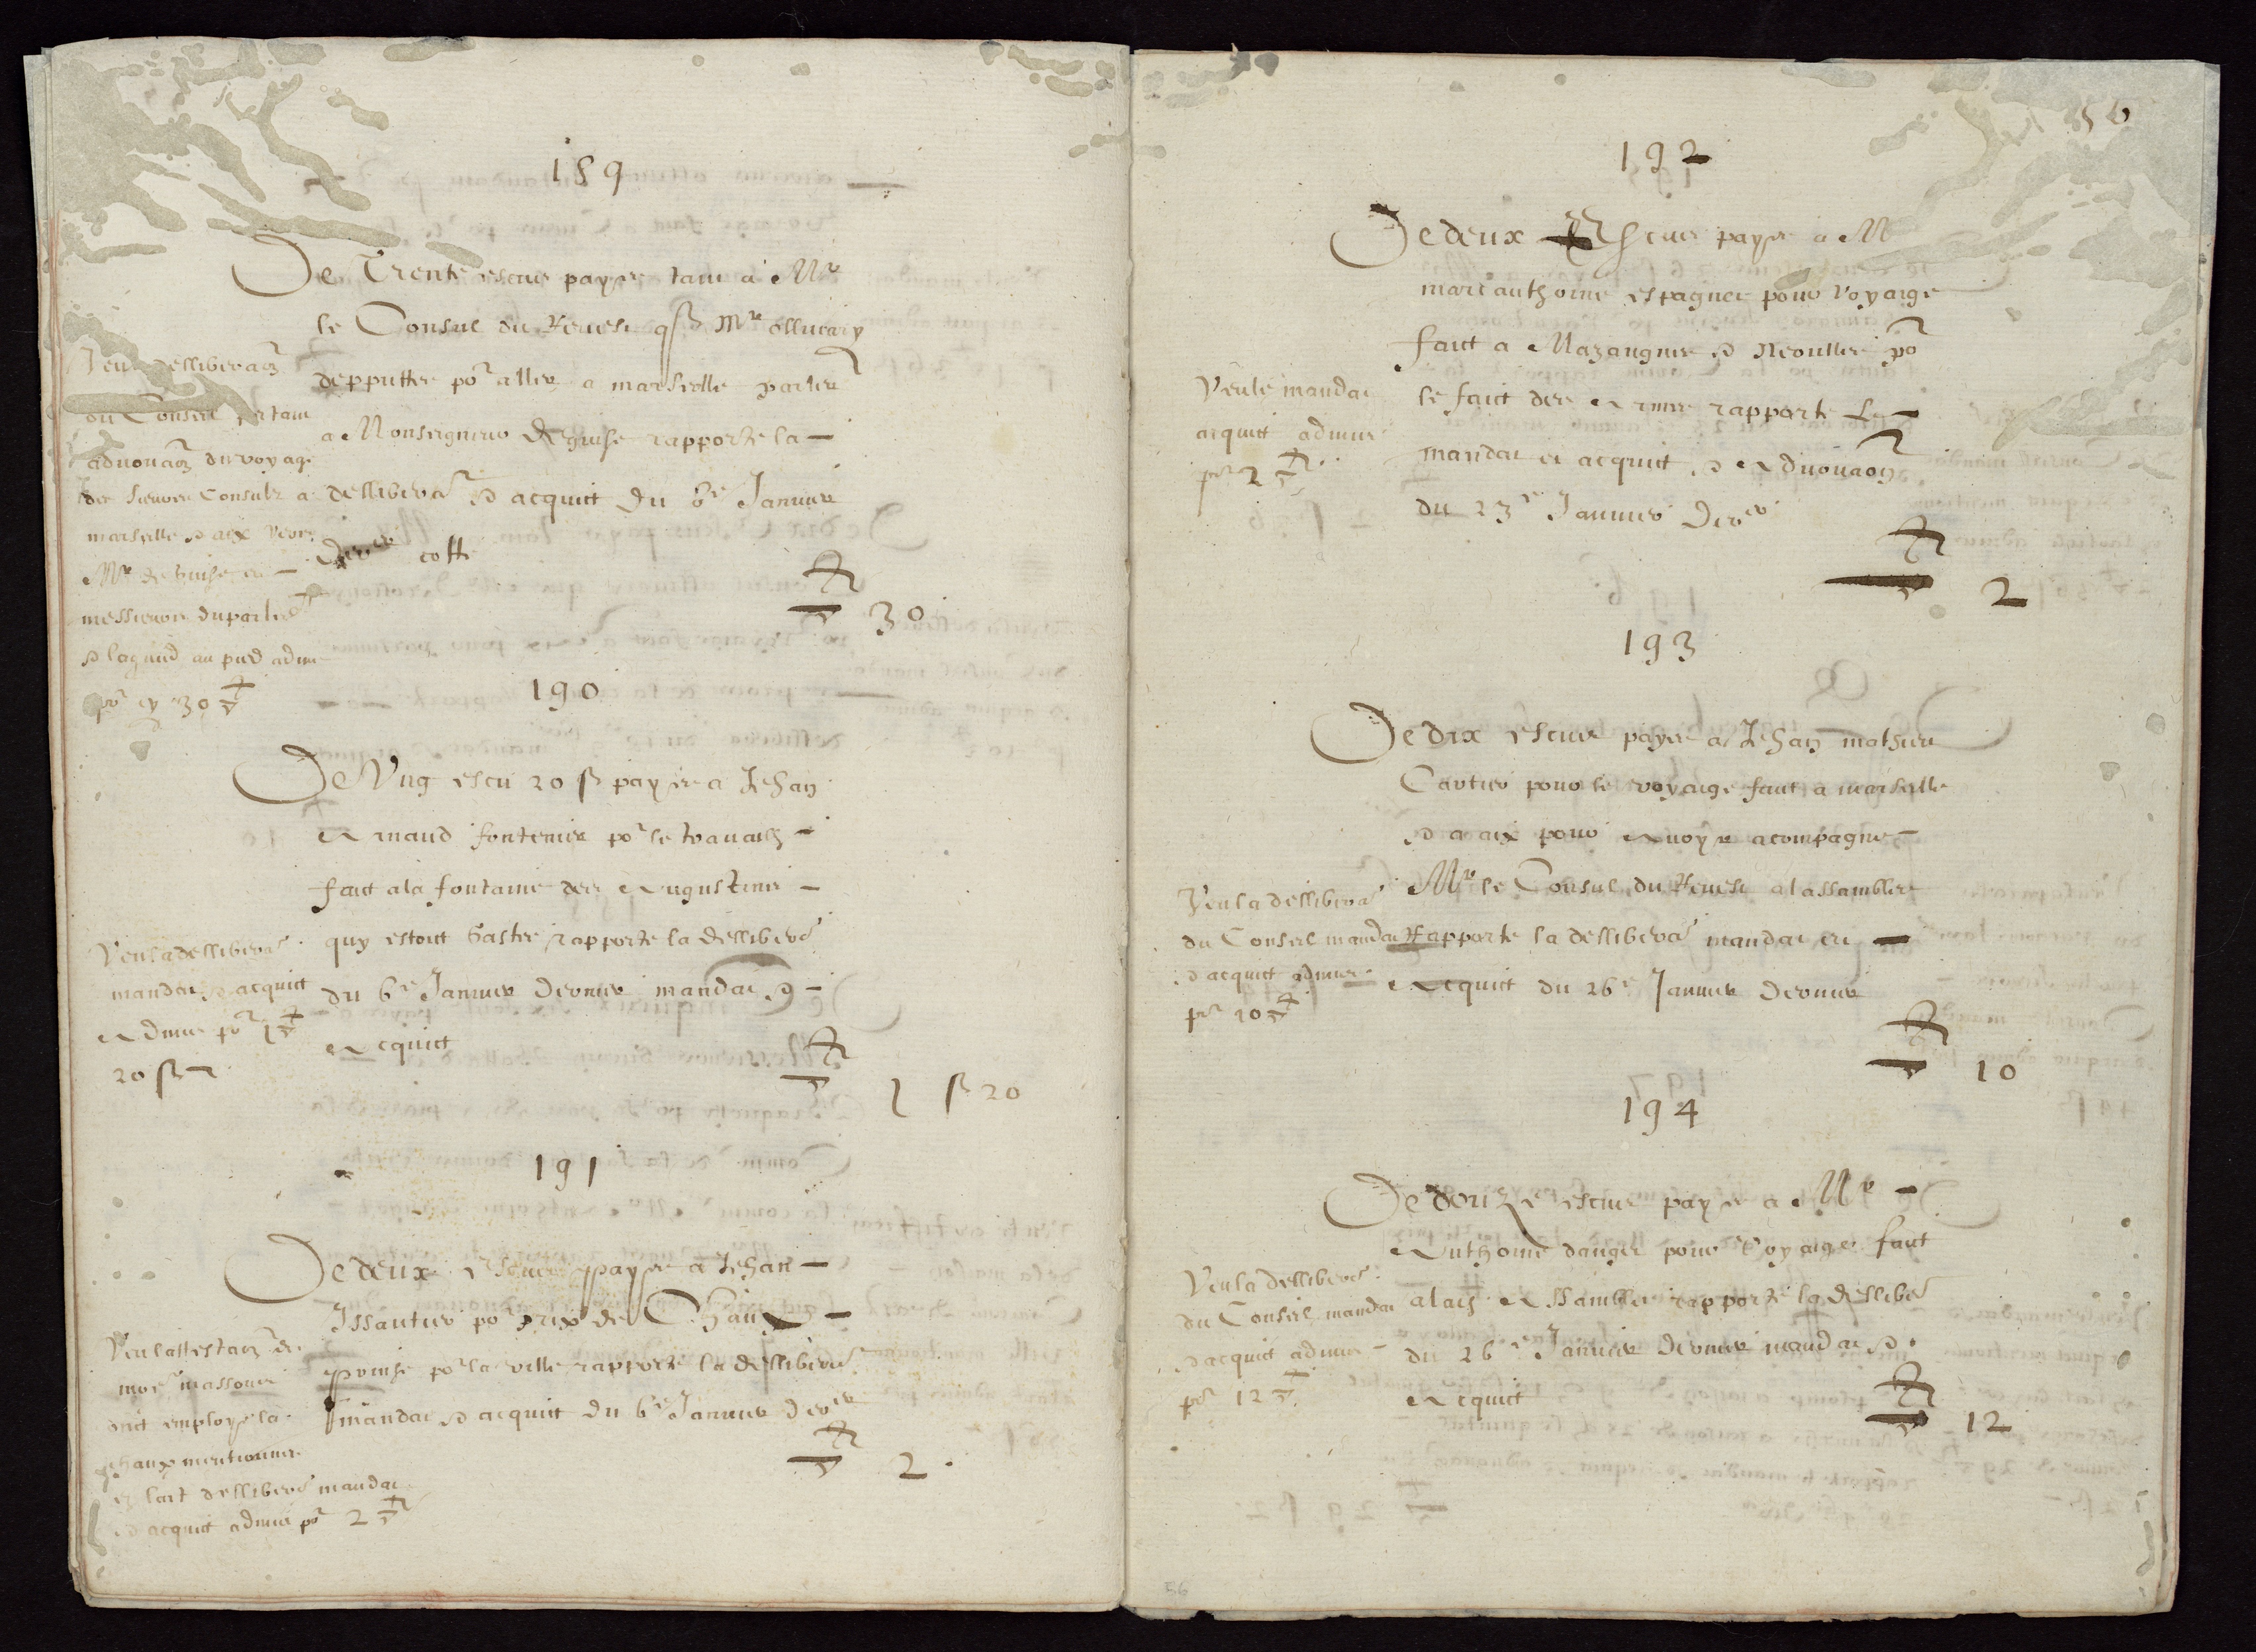 189
De Trente escus payes tant a Mr
le Consul du Revest q sr Mr ollivary
depputtes por aller a marseille parler
a Monseigneur de guise rapporte la
dellibera et acquit du 6e Janvier
dernier cotte
30
Veu dellibera[ti]on
du Conseil portant
advoua[ti]on du voyage
des sieurs Consulz a
marseille et aix vers
Mr de guise et
messieurs du parlet
et la quict au pied admis
por cy 30
190
De Ung escu 20 s payes a Jehan
Arnaud fontenier por le travailh
faict a la fontaine des Augustins
quy estoit gastee rapporte la dellibera
du 6e Janvier dernier mandat et
Acquict
1 s 20
Veu la dellibera
mandat et acquict
Admis por 1
20 s
191
De deux escus payes a Jehan
Issautier por prix de Chaux
prinse por la ville rapporte la dellibera
mandat et acquit du 6e Janvier dernier
2
Veu lattesta[ti]on des
massons
ont employe la
chaux mentionnee
en lart dellibera mandat
et acquit admis por 2
56
192
De deux Escus payes a M
marc anthoine espagnet pour voyaige
faict a Mazaugues et Neoulles por
le faict des Armes rapporte Le
mandat et acquit et Advoua[ti]on
du 23e Janvier dernier
2
Veu le mandat
acquit admis
por 2
193
De dix escus payes a Jehan mathieu
Cartier pour le voyaige faict a marseille
et a aix pour Avoyr acompagne
Mr le Consul du Revest a lassamblee
Rapporte la dellibera mandat et
Acquict du 26e Janvier dernier
10
Veu la dellibera
du Conseil mandat
et acquict admis
por 10
194
De douze escus payes a Mr
Anthoine dauges pour voyaige faict
a laix Assamblee rapporte la dellibe
du 26e Janvier dernier mandat et
Acquict
12
Veu la dellibera
du Conseil mandat
et acquict admis
por 12
56